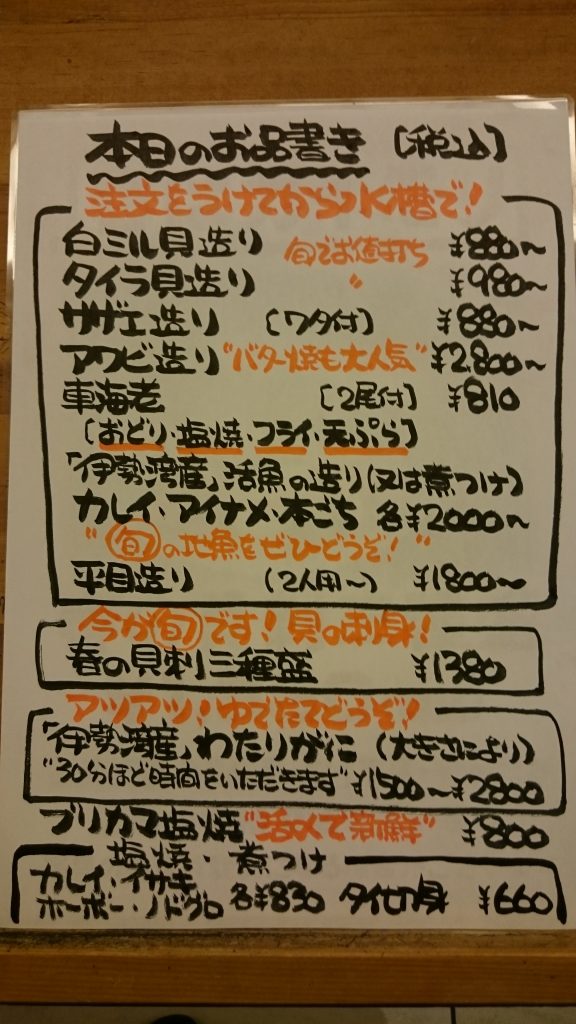 本日のお品書き [税込]
注文をうけてから水槽で!
白ミル貝造り 旬でお値打ち ¥880〜
タイラ貝造り 〃 ¥980〜
サザエ造り [ワタ付] ¥880〜
アワビ造り "バター焼も大人気" ¥2800〜
車海老 [2尾付] ¥810
[おどり・塩焼・フライ・天ぷら]
「伊勢湾産」活魚の造り(又は煮つけ)
カレイ・アイナメ・本ごち 各¥2000〜
"旬の地魚をぜひどうぞ!"
平目造り (2人用〜) ¥1800〜
今が旬です!貝の刺身!
春の貝刺三種盛 ¥1380
アツアツ!ゆでたてどうぞ!
「伊勢湾産」わたりがに (大きさにより)
"30分ほど時間をいただきます" ¥1500〜¥2800
ブリカマ塩焼 "活〆で新鮮" ¥800
塩焼・煮つけ
カレイ・イサキ
ホーボー・ノドグロ 各¥830 タイ切身 ¥660